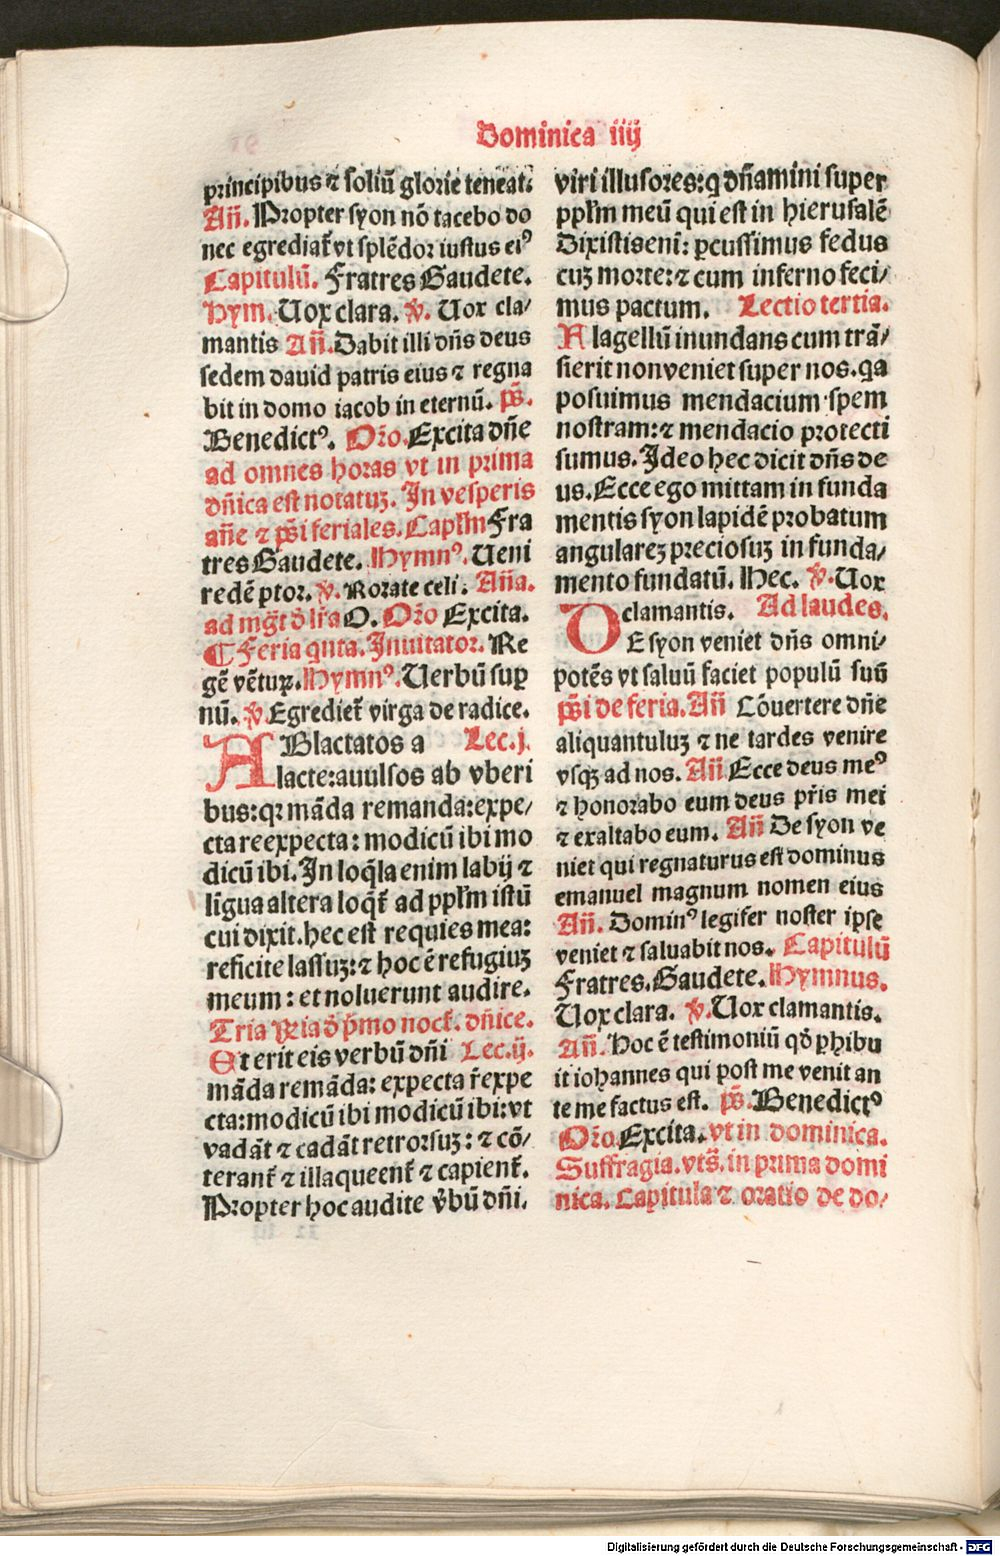 Dominica iiij
principibus ⁊ soliū glorie teneat:
Añ. Propter syon nō tacebo do
nec egrediaꝉ vt splēdor iustus eiꝰ
Capitulū. Fratres Gaudete.
Hym. Uox clara. ℣. Uox cla/
mantis Añ. Dabit illi dn̄s deus
sedem dauid patris eius ⁊ regna
bit in domo iacob in eternū. ps̄.
Benedictꝰ. Or̄o. Excita dn̄e
ad omnes horas vt in prima
dn̄ica est notatuꝫ. In vesperis
an̄e ⁊ ps̄i feriales. Capl̄m Fra
tres Gaudete. Hymnꝰ. Ueni
redēptor. ℣. Rorate celi. An̄a.
ad mḡt d̄ lr̄a O. Or̄o Excita.
¶ Feria qnta. Inuitator. Re
gē vētuꝝ. Hymnꝰ. Uerbū suꝑ
nū. ℣. Egredieꝉ virga de radice.
ABlactatos a Lec.j.
lacte: auulsos ab vberi
bus: qꝛ māda remanda: expe/
cta reexpecta: modicū ibi mo
dicū ibi. In loq̄la enim labij ⁊
līgua altera loq̄ꝉ ad ppl̄m istū
cui dixit. hec est requies mea:
reficite lassuꝫ: ⁊ hoc ē refugiuꝫ
meum: et noluerunt audire.
Tria r̄ria d̄ p̄mo nocꝉ. dn̄ice.
Et erit eis verbū dn̄i Lec.ij.
māda remāda: expecta r̄expe
cta: modicū ibi modicū ibi: vt
vadāt ⁊ cadāt retrorsuꝫ: ⁊ cō/
teranꝉ ⁊ illaqueenꝉ ⁊ capienꝉ.
Propter hoc audite v̄bū dn̄i.
viri illusores: q dn̄amini super
ppl̄m meū qui est in hierusalē
Dixistis eni: ꝑcussimus fedus
cuꝫ morte: ⁊ cum inferno feci/
mus pactum. Lectio tertia.
Flagellū inundans cum trā/
sierit non veniet super nos. qa
posuimus mendacium spem
nostram: ⁊ mendacio protecti
sumus. Ideo hec dicit dn̄s de
us. Ecce ego mittam in funda
mentis syon lapidē probatum
angulareꝫ preciosuꝫ in funda/
mento fundatū. Hec. ℣. Uox
clamantis. Ad laudes.
DE syon veniet dn̄s omni-
potēs vt saluū faciet populū suū
ps̄i de feria. Añ Cōuertere dn̄e
aliquantuluꝫ ⁊ ne tardes venire
vsqꝫ ad nos. Añ. Ecce deus meꝰ
⁊ honorabo eum deus pr̄is mei
⁊ exaltabo eum. Añ De syon ve
niet qui regnaturus est dominus
emanuel magnum nomen eius
Añ. Dominꝰ legifer noster ipse
veniet ⁊ saluabit nos. Capitulū
Fratres. Gaudete. Hymnus.
Uox clara. ℣. Uox clamantis.
Añ. Hoc ē testimoniū qd̄ ꝑhibu
it iohannes qui post me venit an
te me factus est. ps̄. Benedictꝰ
Or̄o. Excita. vt in dominica.
Suffragia. vts̄. in prima domi
nica. Capitula ⁊ oratio de do/
Digitalisierung gefördert durch die Deutsche Forschungsgemeinschaft - DFG